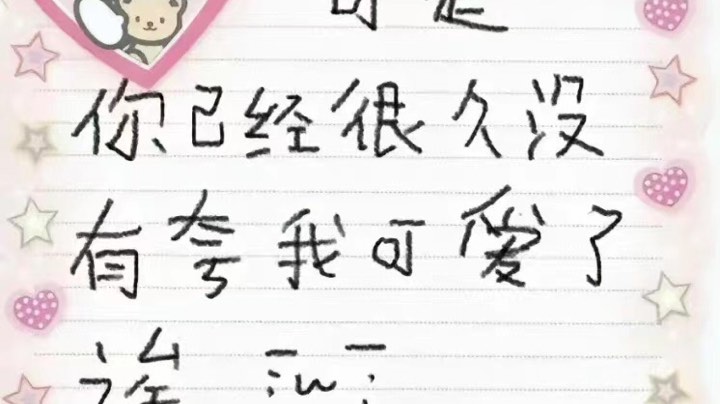 可是
你已经很久没
有夸我可爱了